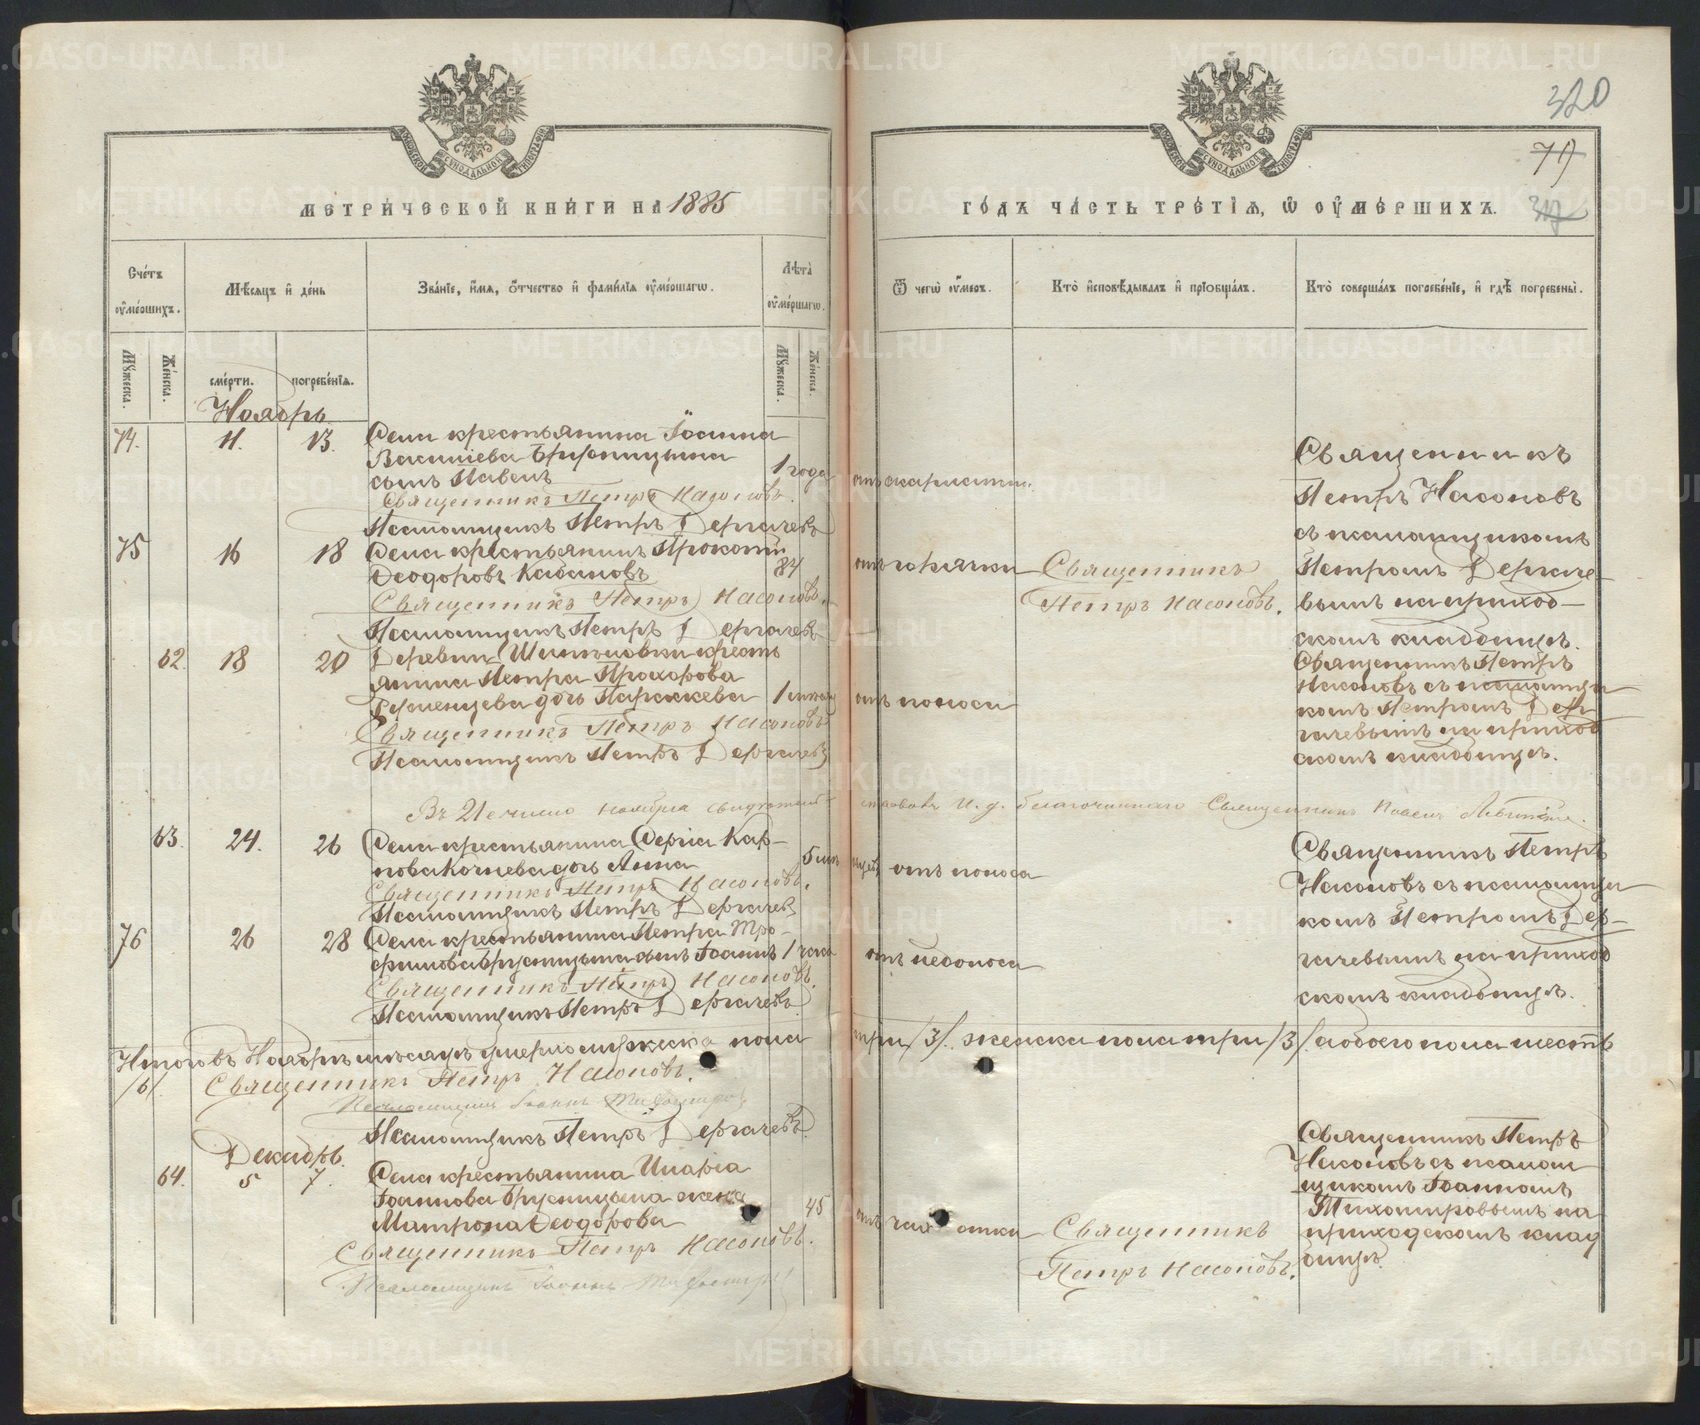 МЕТРИЧЕСКОЙ КНИГИ НА 1885
Счетъ оумершихъ.
Мѣсяцъ и день
Званіе, имя, отчество и фамилія оумершагѡ.
Лѣта оумершагѡ.
Мужеска.
Женска.
смерти.
погребенія.
Мужеска.
Женска.
Ноябрь
74. 11. 13. Села крестьянина Іоанна
Василіева Брусницына
сынъ Павелъ
1 года
Священникъ Петръ Насоновъ.
Псаломщикъ Петръ Дергачевъ
75 16 18 Села крестьянинъ Прокопій
Ѳеодоровъ Кабановъ
84
Священникъ Петръ Насоновъ.
Псаломщикъ Петръ Дергачевъ
62. 18 20 Деревни крестья
янина Петра Прохорова
дочь Параскева
Священникъ Петръ Насоновъ
Псаломщикъ Петръ Дергачевъ
63. 24. 26 Села крестьянина Сергія Кар-
пова дочь Анна
Священникъ Петръ Насоновъ.
Псаломщикъ Петръ Дергачевъ
76 26 28 Села крестьянина Петра Тро-
фимова Брусницына сынъ Іоаннъ 1 часа
Священникъ Петръ Насоновъ.
Псаломщикъ Петръ Дергачевъ
Итого въ Ноябрѣ мѣсяцѣ умерло мужеска пола
/6/ Священникъ Петръ Насоновъ.
Псаломщикъ Іоаннъ Тихомировъ
Псаломщикъ Петръ Дергачевъ
Декабрь.
64. 5 7. Села крестьянина Иларіа
Іоаннова Брусницына жена
Матрона Ѳеодорова
45
Священникъ Петръ Насоновъ.
Псаломщикъ Іоаннъ Тихомировъ
320
79
ГОДЪ ЧАСТЬ ТРЕТІЯ, Ѡ ОУМЕРШИХЪ.
Ѿ чегѡ оумеръ.
Кто исповѣдывалъ и пріобщалъ.
Кто совершалъ погребеніе, и гдѣ погребены.
отъ скарлатины.
Священникъ
Петръ Насоновъ
съ псаломщикомъ
Петромъ Дергаче-
вымъ на приход-
скомъ кладбищѣ.
отъ горячки
Священникъ
Петръ Насоновъ.
отъ поноса
Священникъ Петръ
Насоновъ съ псаломщи
комъ Петромъ Дер
гачевымъ на приход
скомъ кладбищѣ.
Въ 21 число ноября благочиннаго Священникъ Павелъ
отъ поноса
Священникъ Петръ
Насоновъ съ псаломщи
комъ Петромъ Дер-
гачевымъ на приход
скомъ кладбищѣ.
отъ недоноса
три /3/. женска пола три /3/. а обоего пола шесть
отъ чахотки
Священникъ
Петръ Насоновъ.
Священникъ Петръ
Насоновъ съ псалом
щикомъ Іоанномъ
Тихомировымъ на
приходскомъ клад
бищѣ.
METRIKI.GASO-URAL.RU